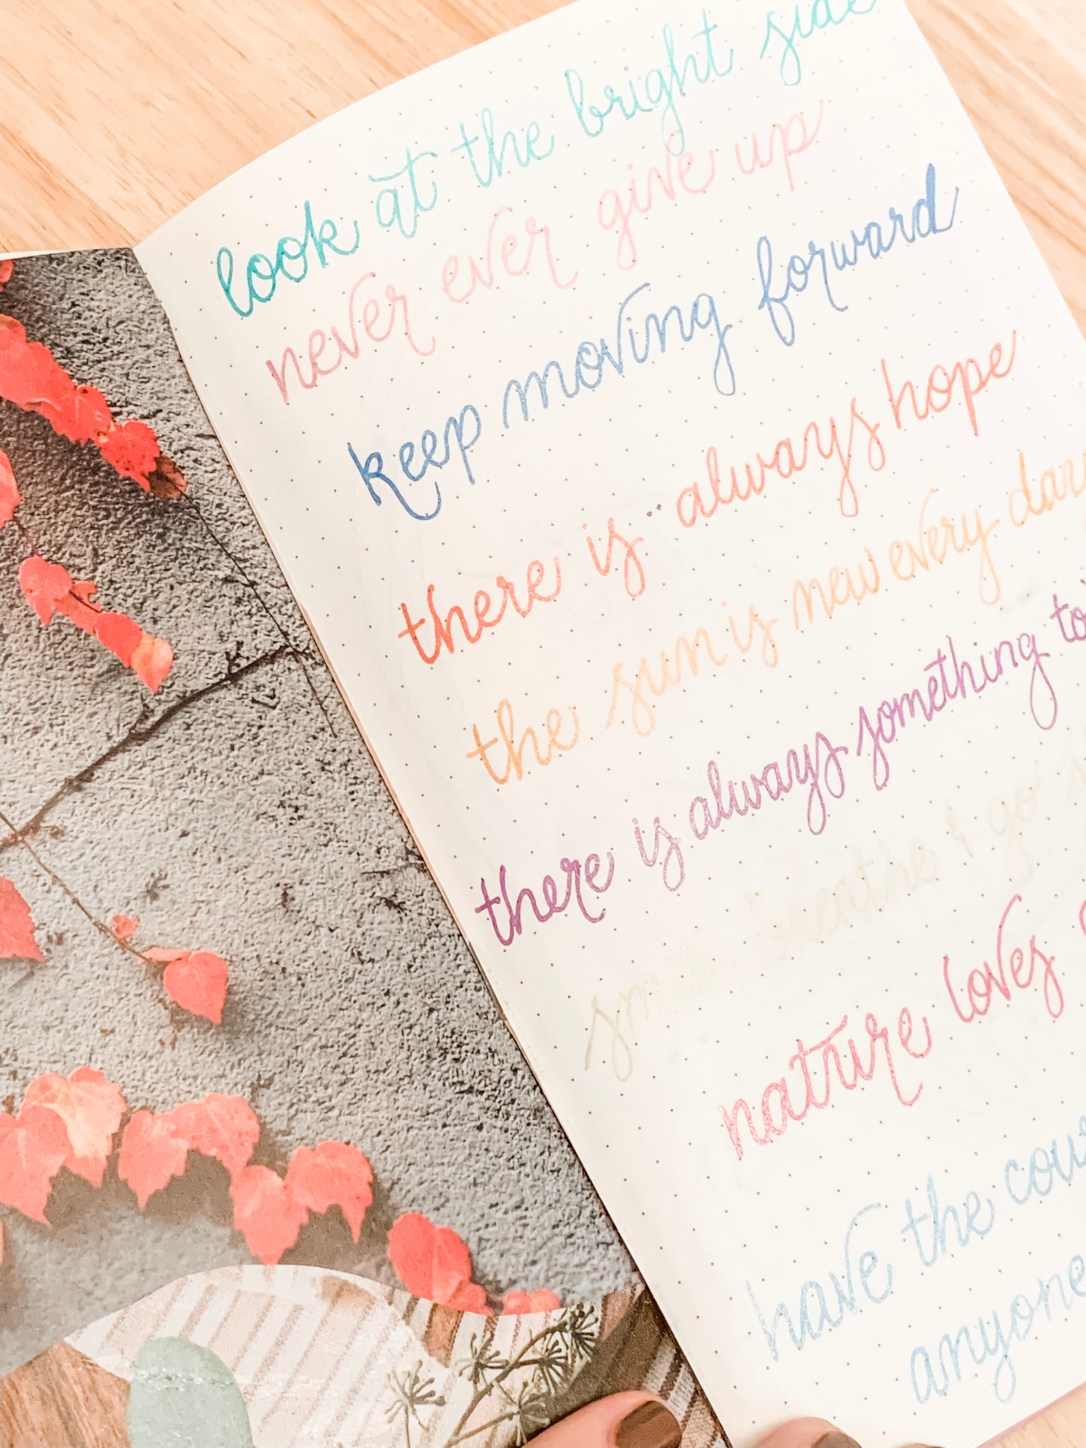 look at the bright side
never ever give up
keep moving forward
there is always hope
the sun is new every day
there is always something to
breathe & go
nature loves
have the
anyone